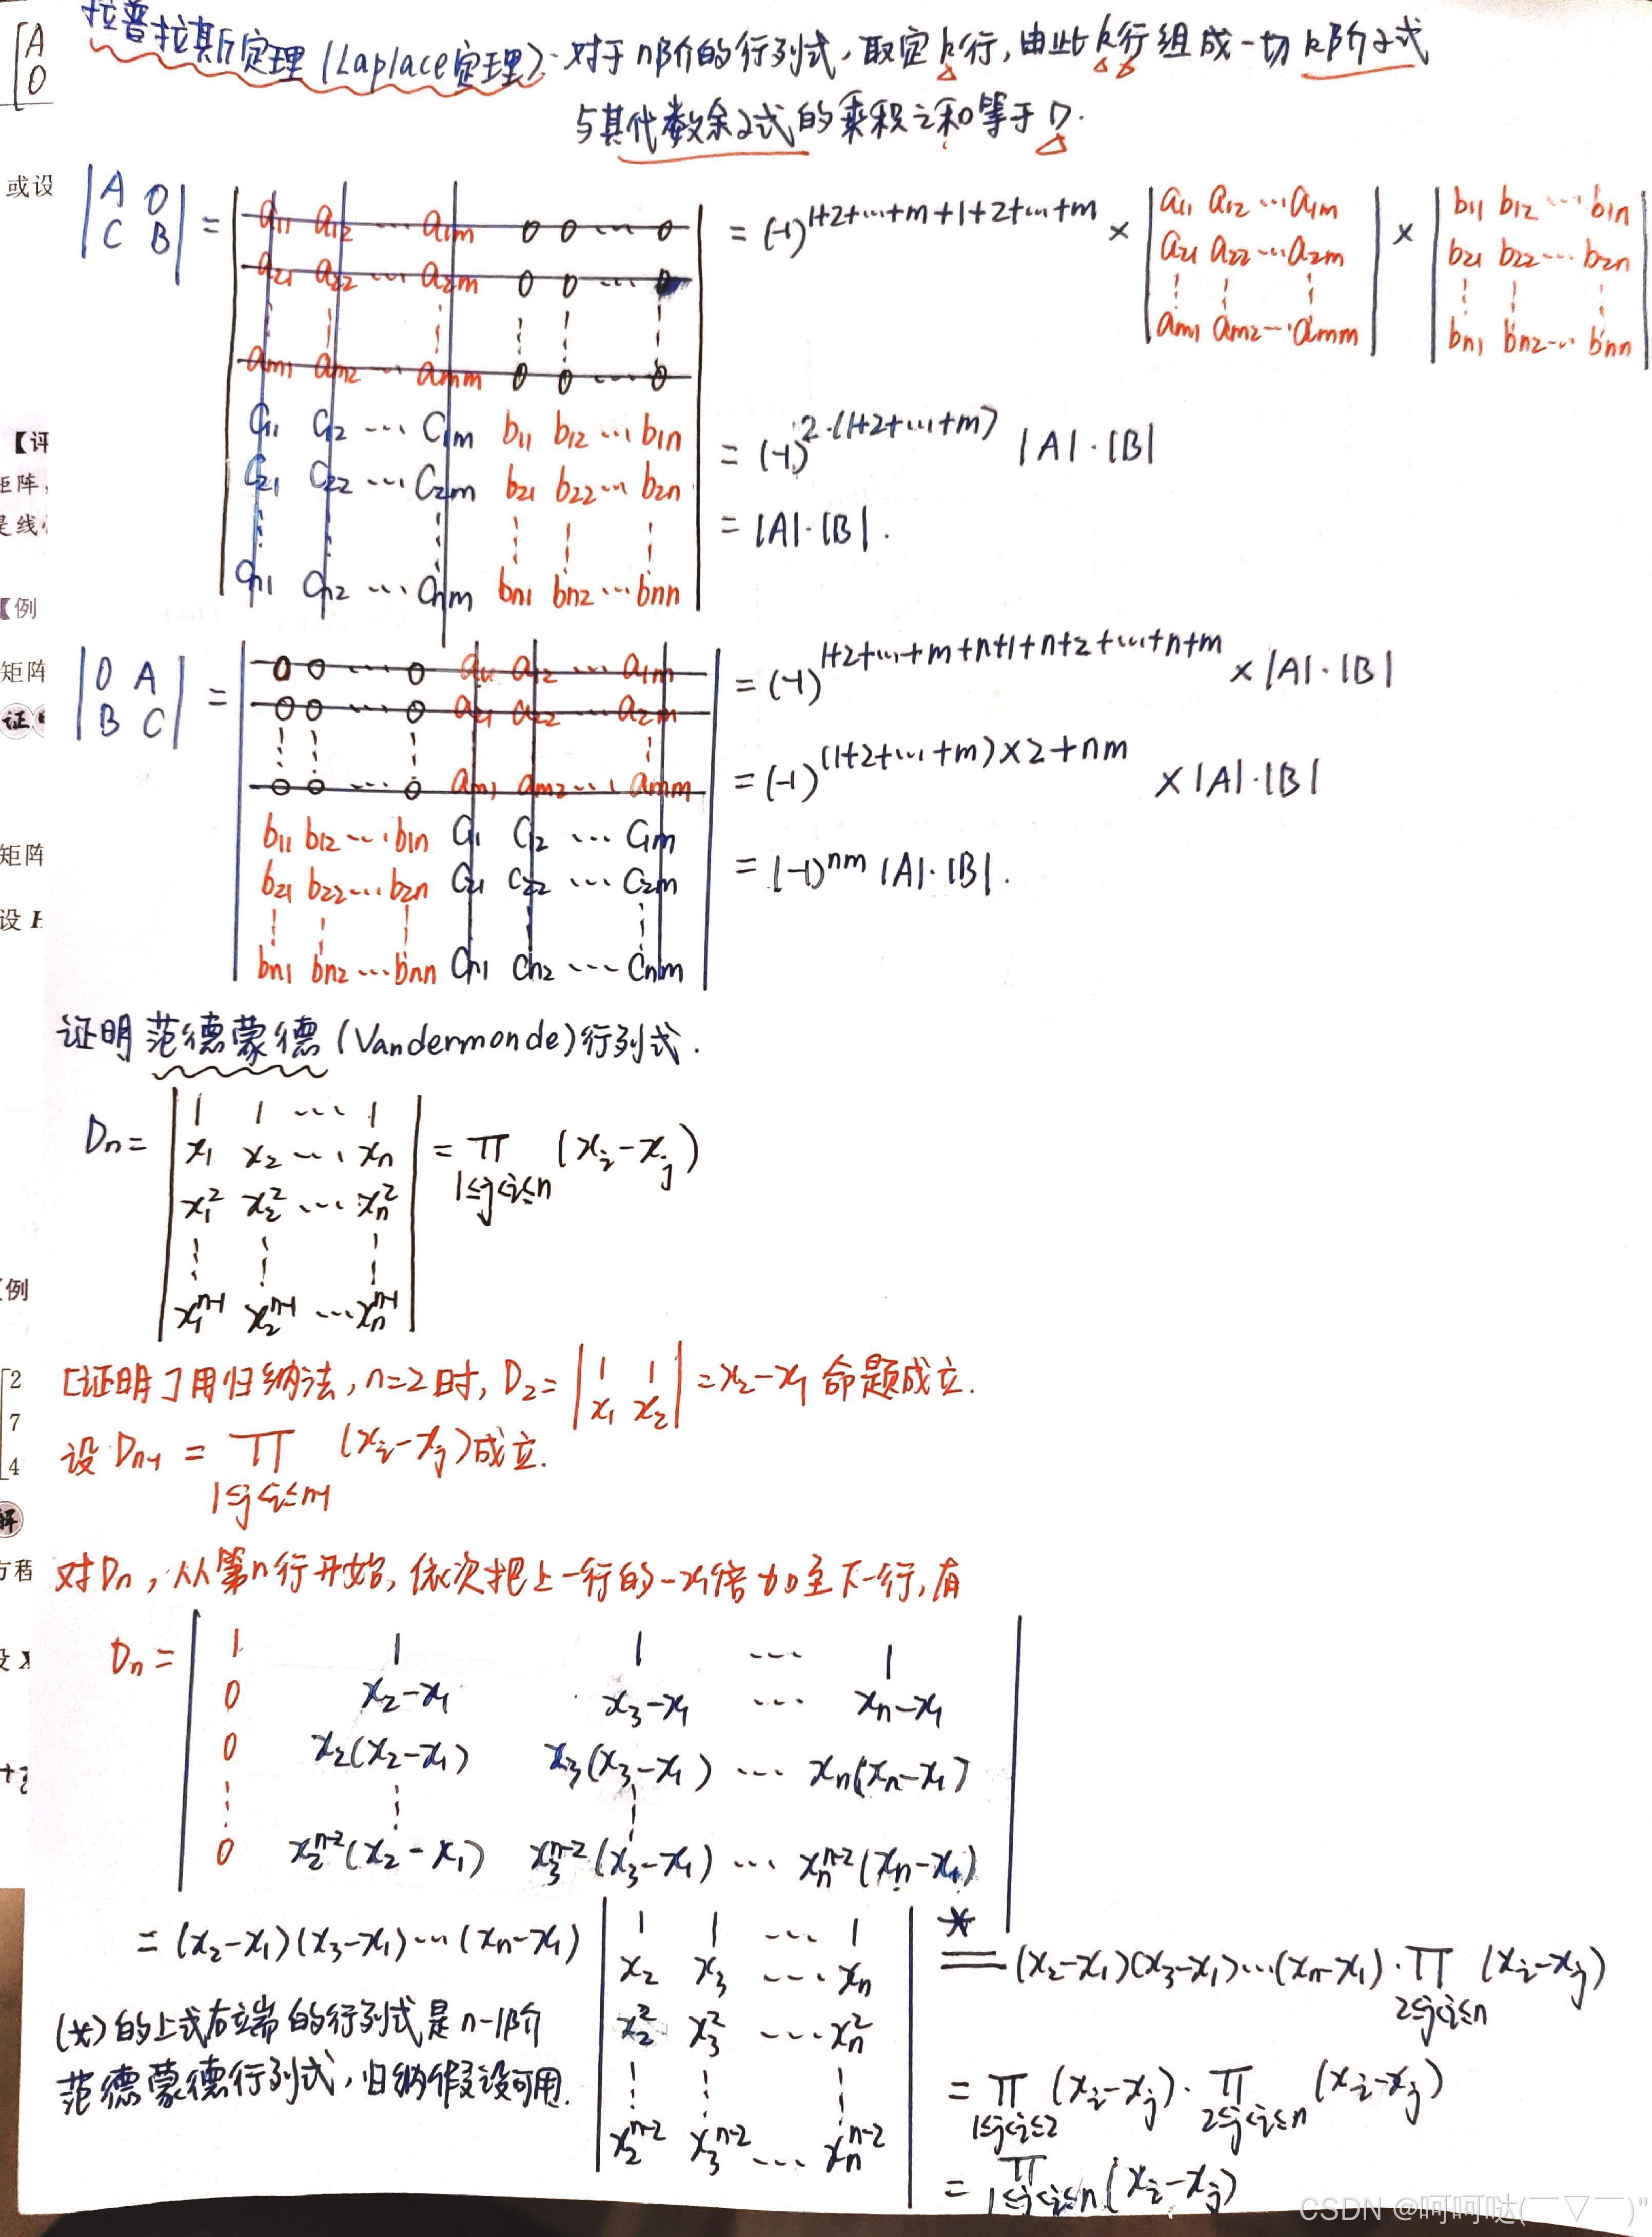 拉普拉斯定理(Laplace定理):对于n阶的行列式,取定k行,由此k行组成一切k阶子式
与其代数余子式的乘积之和等于D.
|A O; C B| = |a11 a12 ⋯ a1m 0 0 ⋯ 0; a21 a22 ⋯ a2m 0 0 ⋯ 0; ⋮; am1 am2 ⋯ amm 0 0 ⋯ 0; c11 c12 ⋯ c1m b11 b12 ⋯ b1n; c21 c22 ⋯ c2m b21 b22 ⋯ b2n; ⋮; cn1 cn2 ⋯ cnm bn1 bn2 ⋯ bnn| = (-1)^{1+2+⋯+m+1+2+⋯+m} × |a11 a12 ⋯ a1m; a21 a22 ⋯ a2m; ⋮; am1 am2 ⋯ amm| × |b11 b12 ⋯ b1n; b21 b22 ⋯ b2n; ⋮; bn1 bn2 ⋯ bnn|
= (-1)^{2·(1+2+⋯+m)} |A|·|B|
= |A|·|B|.
|O A; B C| = |0 0 ⋯ 0 a11 a12 ⋯ a1m; 0 0 ⋯ 0 a21 a22 ⋯ a2m; ⋮; 0 0 ⋯ 0 am1 am2 ⋯ amm; b11 b12 ⋯ b1n c11 c12 ⋯ c1m; b21 b22 ⋯ b2n c21 c22 ⋯ c2m; ⋮; bn1 bn2 ⋯ bnn cn1 cn2 ⋯ cnm| = (-1)^{1+2+⋯+m+n+1+n+2+⋯+n+m} × |A|·|B|
= (-1)^{(1+2+⋯+m)×2+nm} × |A|·|B|
= (-1)^{nm} |A|·|B|.
证明范德蒙德(Vandermonde)行列式.
Dn = |1 1 ⋯ 1; x1 x2 ⋯ xn; x1² x2² ⋯ xn²; ⋮; x1^{n-1} x2^{n-1} ⋯ xn^{n-1}| = ∏_{1≤j<i≤n} (xi-xj)
[证明]用归纳法,n=2时,D2 = |1 1; x1 x2| = x2-x1 命题成立.
设Dn-1 = ∏_{1≤j<i≤n-1} (xi-xj)成立.
对Dn,从第n行开始,依次把上一行的-x1倍加至下一行,有
Dn = |1 1 1 ⋯ 1; 0 x2-x1 x3-x1 ⋯ xn-x1; 0 x2(x2-x1) x3(x3-x1) ⋯ xn(xn-x1); ⋮; 0 x2^{n-2}(x2-x1) x3^{n-2}(x3-x1) ⋯ xn^{n-2}(xn-x1)|
= (x2-x1)(x3-x1)⋯(xn-x1) |1 1 ⋯ 1; x2 x3 ⋯ xn; x2² x3² ⋯ xn²; ⋮; x2^{n-2} x3^{n-2} ⋯ xn^{n-2}| =* (x2-x1)(x3-x1)⋯(xn-x1)·∏_{2≤j<i≤n} (xi-xj)
(*)的上式右端的行列式是n-1阶
范德蒙德行列式,归纳假设可用.
= ∏_{1≤j<i≤2} (xi-xj)·∏_{2≤j<i≤n} (xi-xj)
= ∏_{1≤j<i≤n} (xi-xj)
[A
0
或设
【评
矩阵,
是线
【例
矩阵
证
矩阵
设
例
2
7
4
解
方程
设
CSDN @呵呵哒(￣▽￣)"